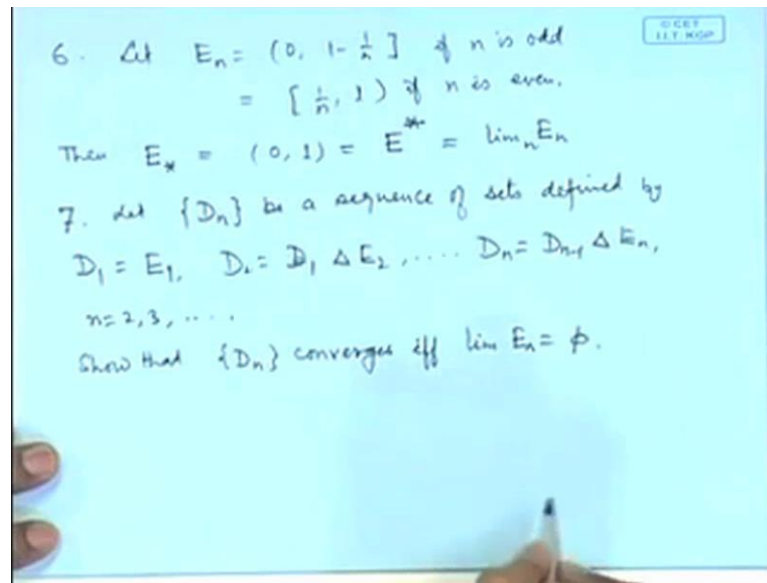 © CET
I.I.T. KGP
6. Let Eₙ = (0, 1 - 1/n ] if n is odd
= [ 1/n, 1) if n is even.
Then E_* = (0, 1) = E^* = limₙ Eₙ
7. Let {Dₙ} be a sequence of sets defined by
D₁ = E₁, D₂ = D₁ Δ E₂, .... Dₙ = Dₙ₋₁ Δ Eₙ,
n = 2, 3, ....
Show that {Dₙ} converges iff lim Eₙ = φ.